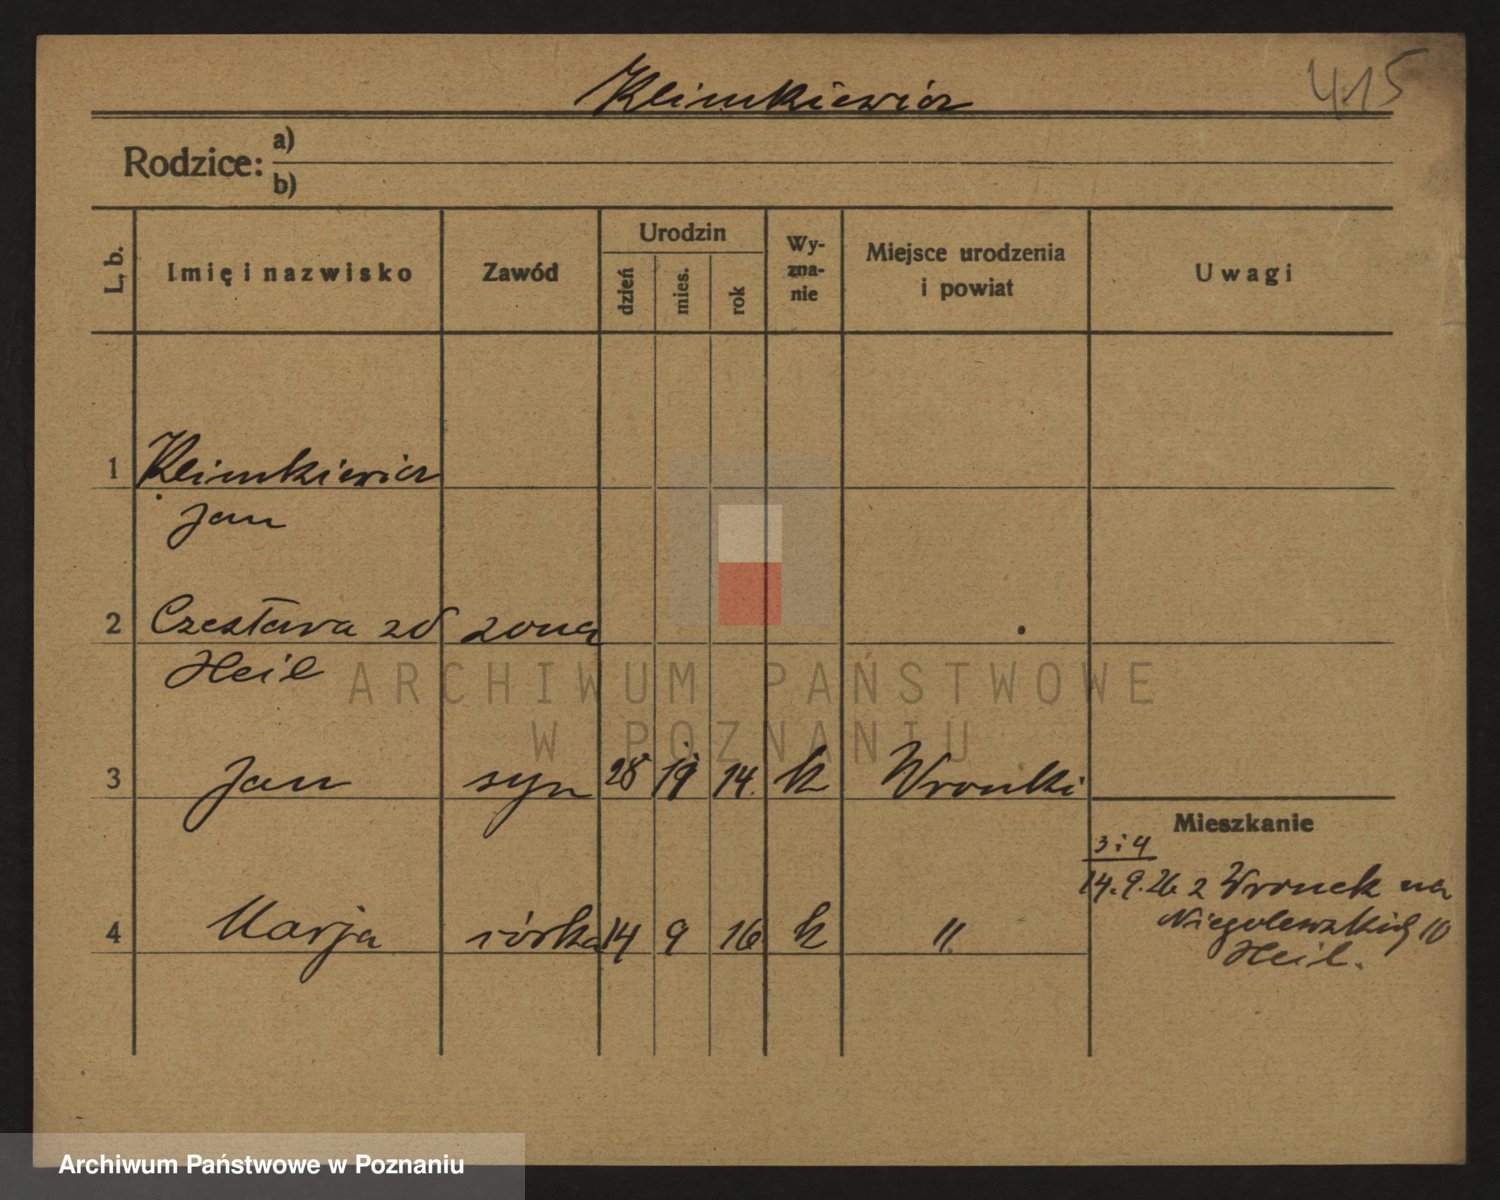 Klimkiewicz
415
Rodzice:
a)
b)
L. b.
Imię i nazwisko
Zawód
Urodzin
dzień
mies.
rok
Wy-
zna-
nie
Miejsce urodzenia
i powiat
Uwagi
1 Klimkiewicz
Jan
2 Czesława zd żona
Heil
3 Jan syn 28 14. k Wronki
Mieszkanie
3 i 4
14.9.26 z Wronek na
4 Marja córka 14 9 16 k "
Niegolewskich 10
Heil.
ARCHIWUM PAŃSTWOWE
W POZNANIU
Archiwum Państwowe w Poznaniu